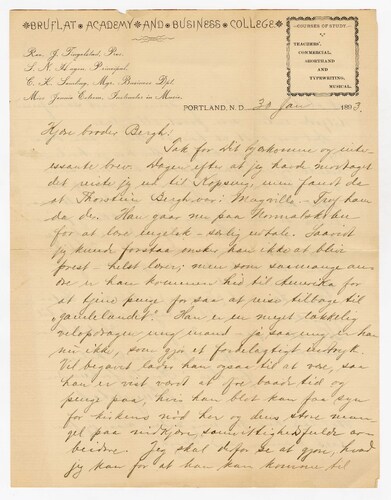 BRUFLAT ACADEMY AND BUSINESS COLLEGE.
Rev. J. Tingelstad, Pres.
S. N. Hagen, Principal.
Mgr. Business Dpt.
Miss Jennie Instructor in Music.
COURSES OF STUDY
TEACHERS',
COMMERCIAL,
SHORTHAND
AND
TYPEWRITING,
MUSICAL.
PORTLAND, N.D. 30 Jan 1893.
Kjære broder Bergh:
Tak for Dit velkomne og inter-
essante brev. Dagen efter at jeg havde modtaget
det reiste jeg ud til men fandt da
at Thorstein Bergh var i Mayville. – Traf ham
da der. Han gaar nu paa Normalskolen
for at lære engelsk – særlig udtale. Saavidt
jeg kunde forstaa ønsker han ikke at blive
prest – helst lærer; men som saa mange an-
dre er han kommen hid til Amerika for
at tjene penge for saa at reise tilbage til
"gamlelandet." Han er en meget tækkelig
velopdragen ung mand – ja saa ung er han
nu ikke, som gjør et fordelagtigt indtryk.
Vel begavet lader han ogsaa til at være, saa
han er vist værd at ofre baade tid og
penge paa, hvis han blot kan faa syn
for kirkens nød her og dens store man-
gel paa nidkjære, arbeidere. Jeg skal derfor se at gjøre, hvad
jeg kan for at han kan komme til